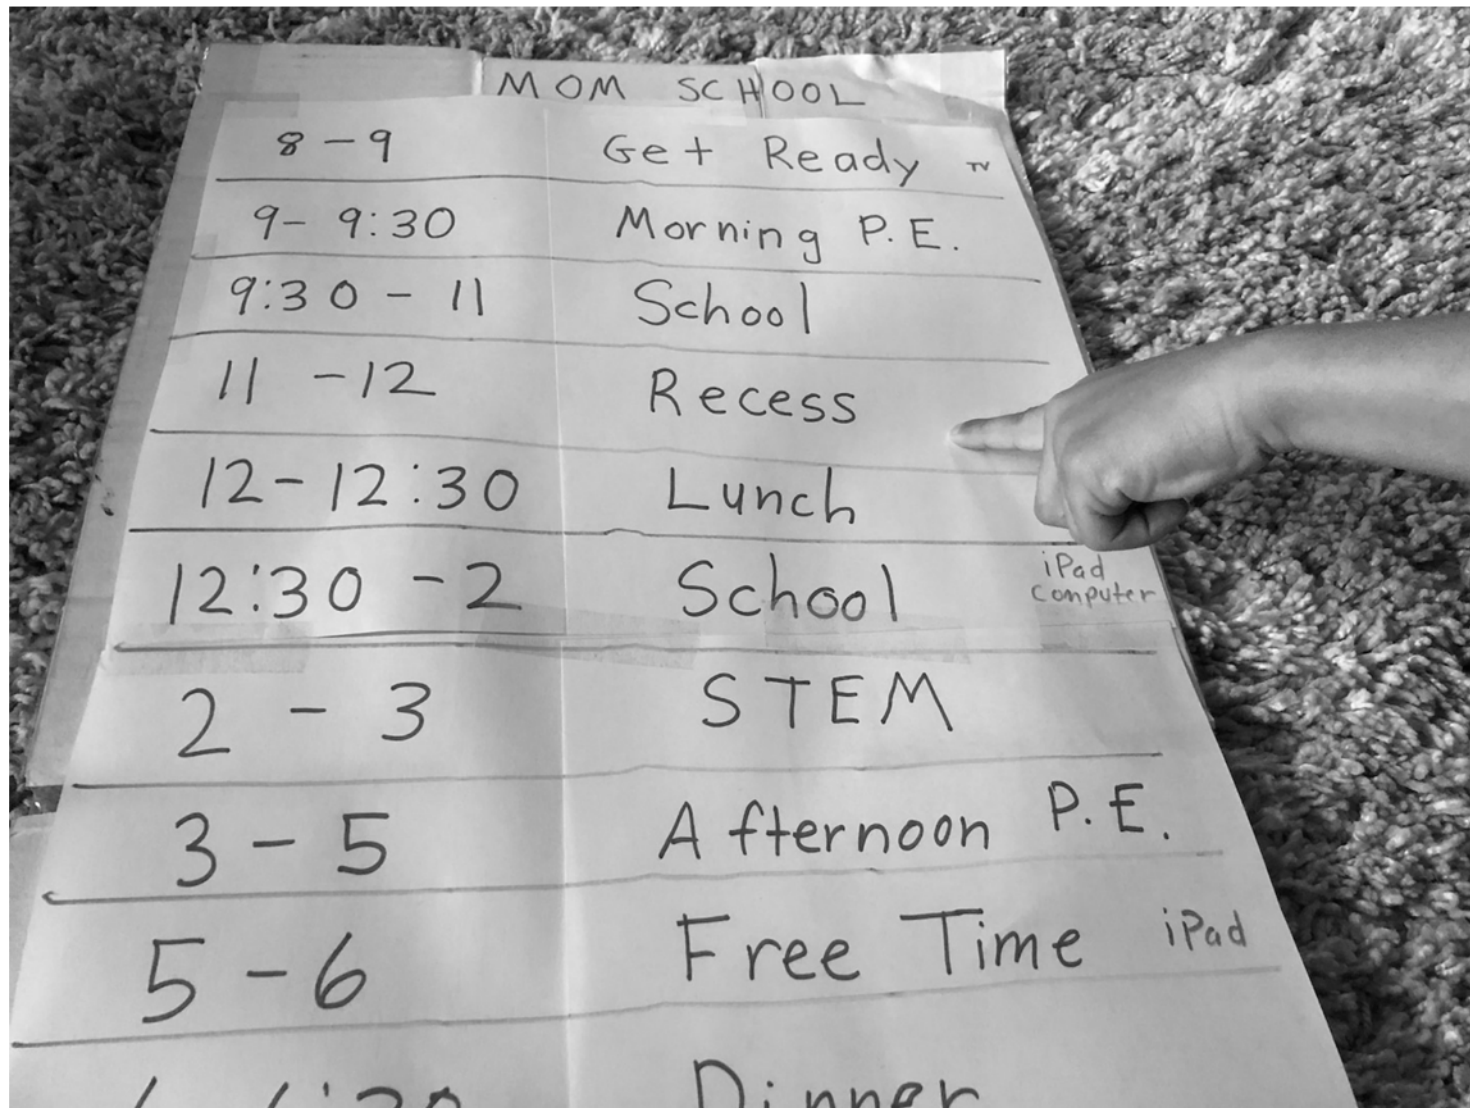 MOM SCHOOL
8 - 9 Get Ready TV
9 - 9:30 Morning P.E.
9:30 - 11 School
11 - 12 Recess
12 - 12:30 Lunch
12:30 - 2 School iPad computer
2 - 3 STEM
3 - 5 Afternoon P.E.
5 - 6 Free Time iPad
Dinner